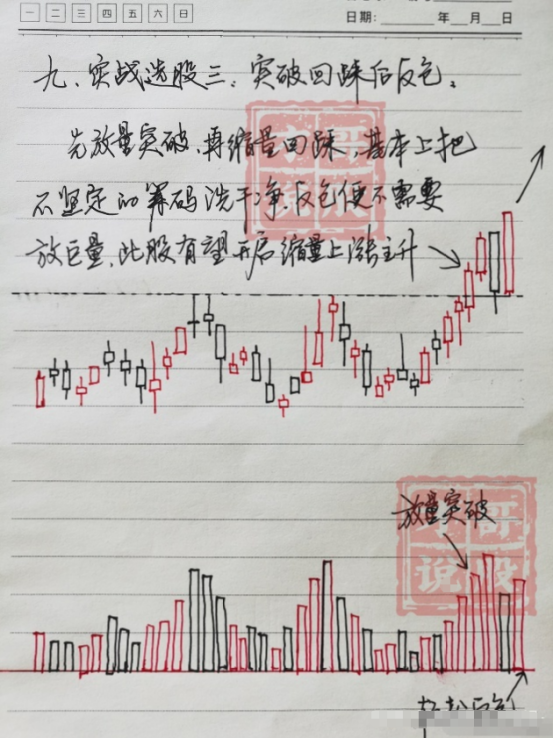 一 二 三 四 五 六 日
日期: 年 月 日
九、实战选股三：突破回踩后反包。
先放量突破，再缩量回踩，基本上把
不坚定的筹码洗干净，反包便不需要
放巨量，此股有望开启缩量上涨主升
哥
说股
放量突破
哥
说股
反包